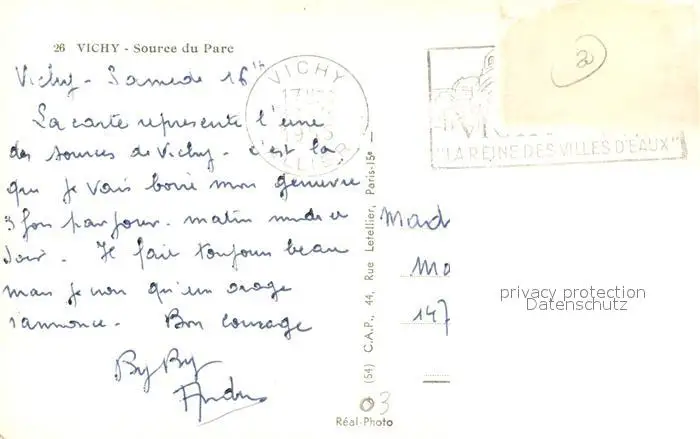 26 VICHY - Source du Parc
Vichy - Samedi 16h
La carte représente l'une
des sources de Vichy. c'est la
que je vais boire mon
3 fois par jour. matin midi et
soir. Il fait toujours beau
mais je crois qu'un orage
s'annonce. Bon courage
By By
VICHY
17
ALLIER
"LA REINE DES VILLES D'EAUX"
2
(54) C.A.P., 44, Rue Letellier, Paris-15e
Mad
Mo
147
privacy protection
Datenschutz
3
Réal-Photo